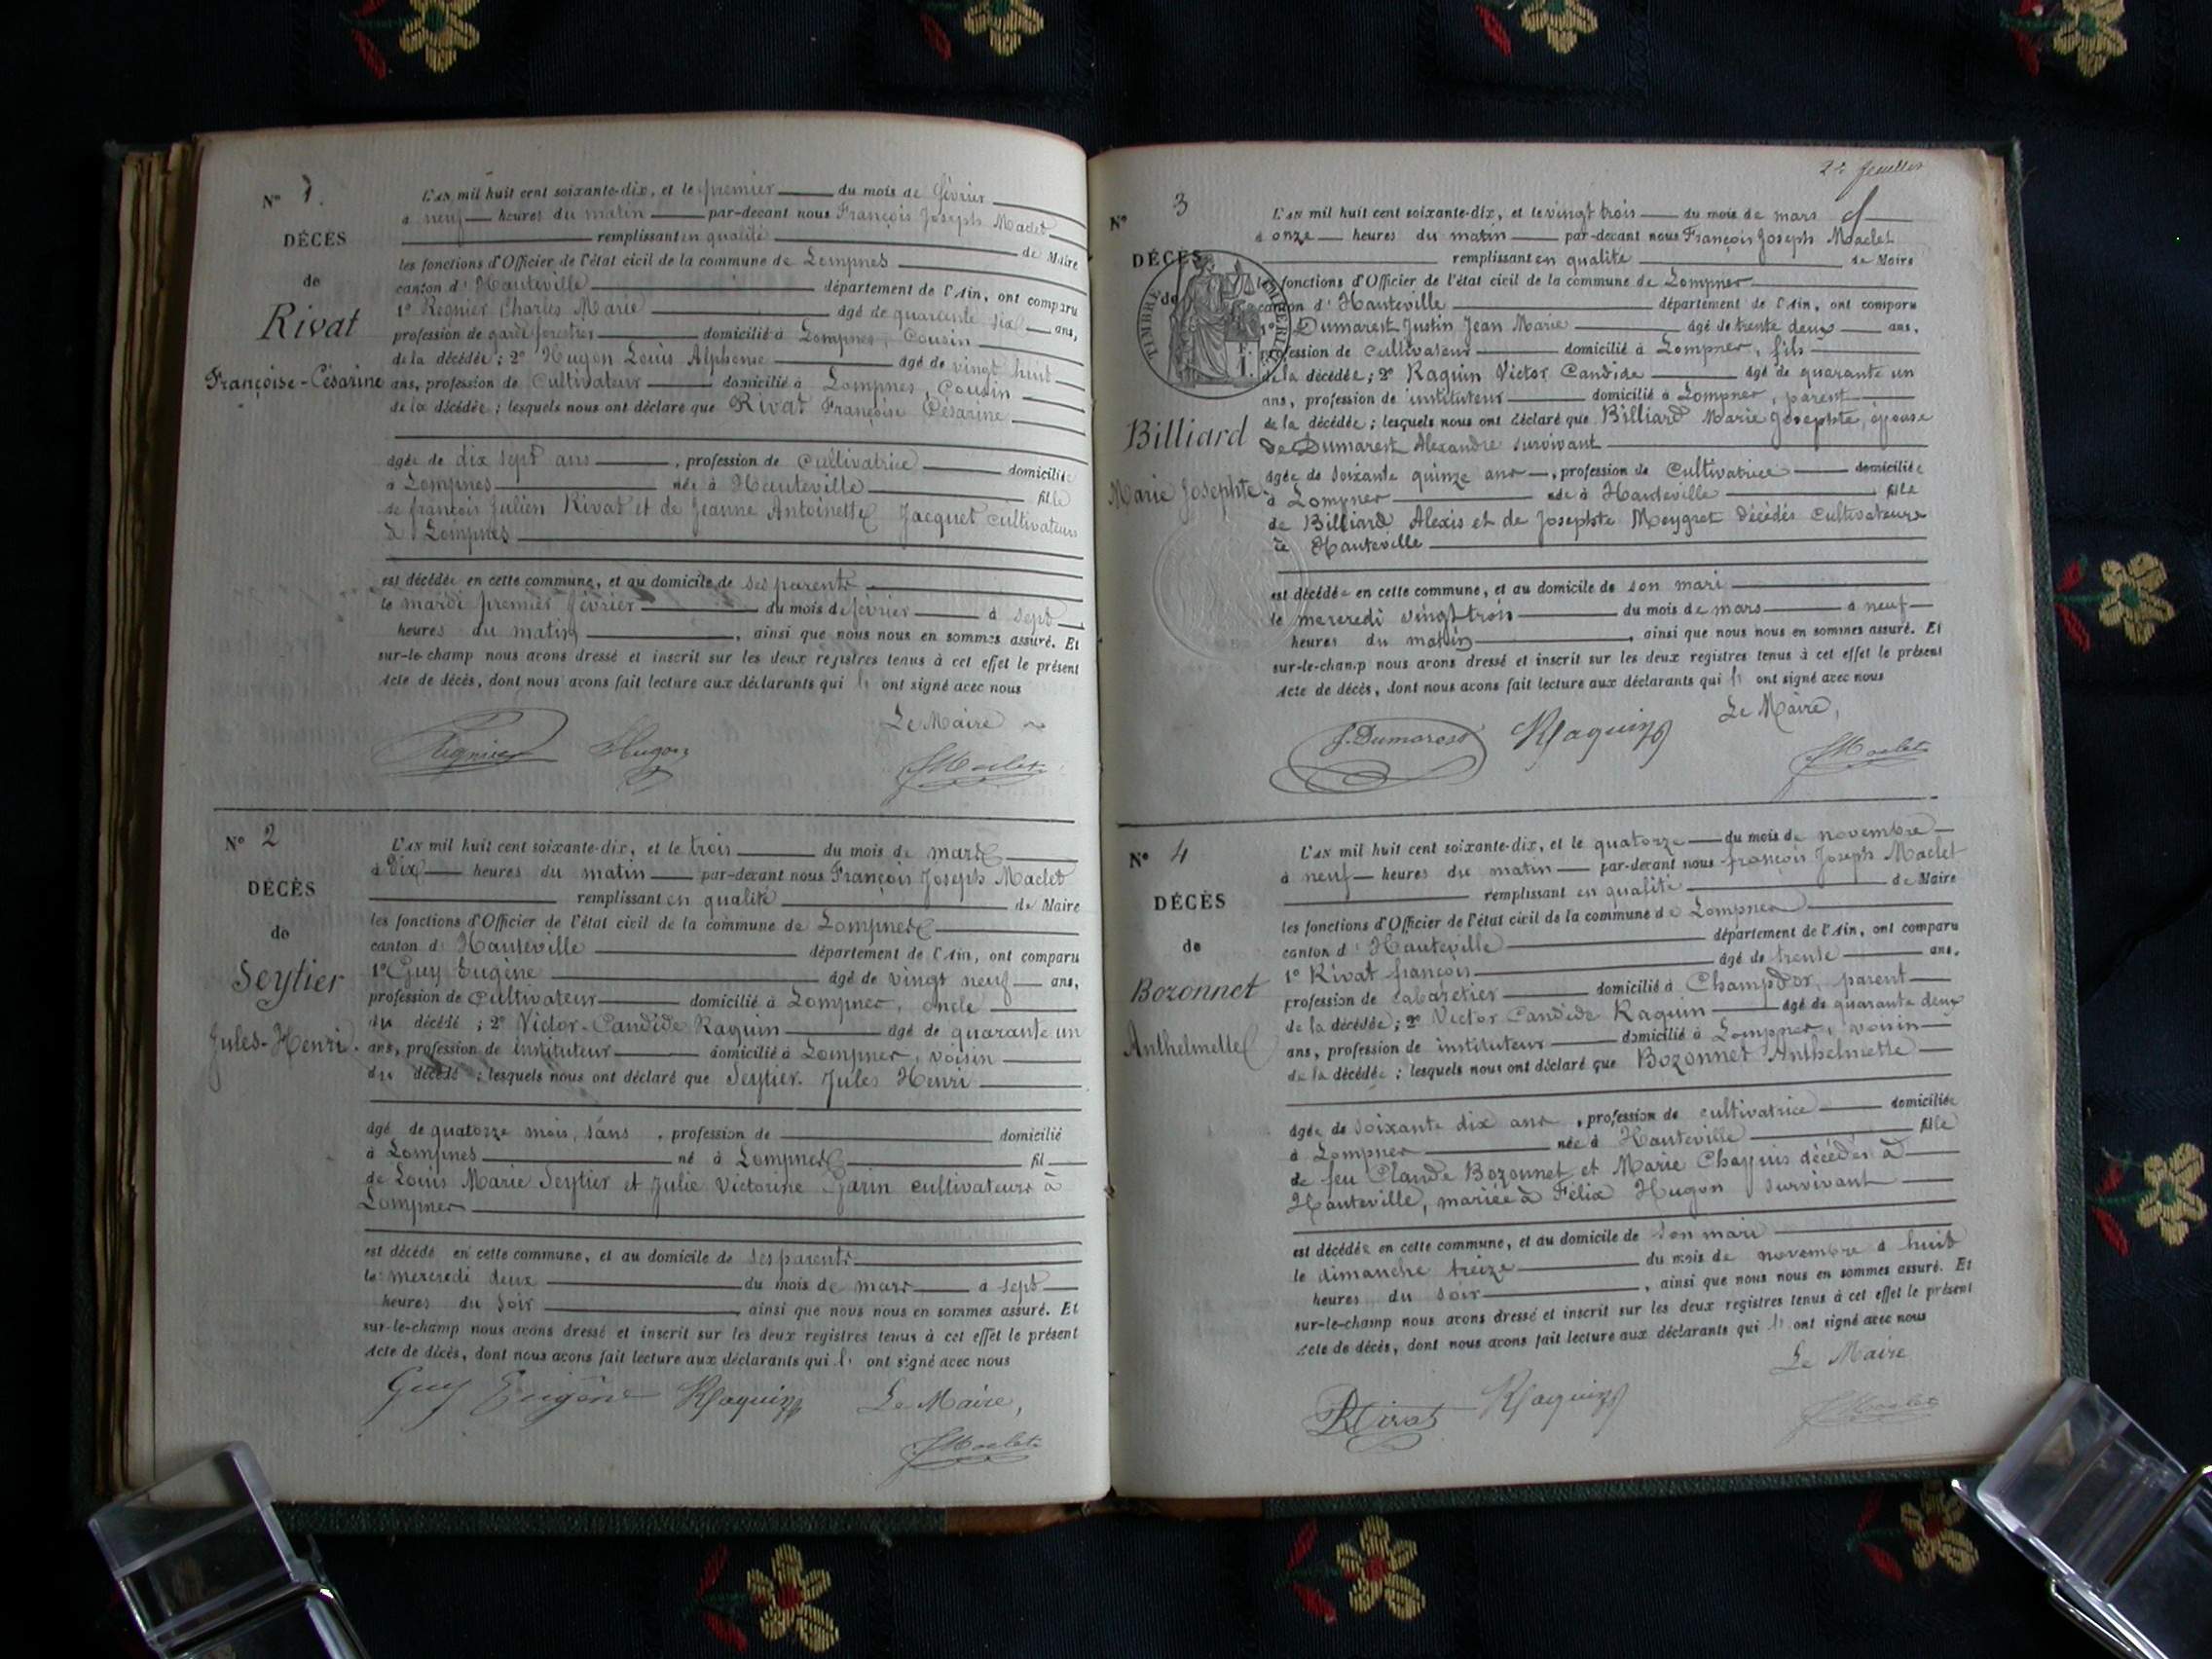 N° 1.
DÉCÈS
de
Rivat
Françoise-Césarine
L'AN mil huit cent soixante-dix, et le premier du mois de février
à neuf heures du matin par-devant nous François Joseph Maclet
remplissant en qualité de Maire
les fonctions d'Officier de l'état civil de la commune de Lompnes
canton d' Hauteville département de l'Ain, ont comparu
1° Regnier Charles Marie âgé de quarante six ans,
profession de garde forestier domicilié à Lompnes, Cousin
de la décédée ; 2° Hugon Louis Alphonse âgé de vingt huit
ans, profession de Cultivateur domicilié à Lompnes, Cousin
de la décédée ; lesquels nous ont déclaré que Rivat Françoise Césarine
âgée de dix sept ans, profession de Cultivatrice domiciliée
à Lompnes née à Hauteville fille
de françois Julien Rivat et de Jeanne Antoinette Jacquet cultivateurs
à Lompnes
est décédée en cette commune, et au domicile de ses parents
le mardi premier février du mois de février à sept
heures du matin, ainsi que nous nous en sommes assuré. Et
sur-le-champ nous avons dressé et inscrit sur les deux registres tenus à cet effet le présent
Acte de décès, dont nous avons fait lecture aux déclarants qui ont signé avec nous
Le Maire
Regnier Hugon JMaclet
N° 2
DÉCÈS
de
Seytier
Jules-Henri.
L'AN mil huit cent soixante-dix, et le trois du mois de mars
à Dix heures du matin par-devant nous François Joseph Maclet
remplissant en qualité de Maire
les fonctions d'Officier de l'état civil de la commune de Lompnes
canton d' Hauteville département de l'Ain, ont comparu
1° Guy Eugène âgé de vingt neuf ans,
profession de cultivateur domicilié à Lompnes, oncle
du décédé ; 2° Victor-Candide Raquin âgé de quarante un
ans, profession de instituteur domicilié à Lompnes, voisin
du décédé ; lesquels nous ont déclaré que Seytier Jules Henri
âgé de quatorze mois, sans, profession de domicilié
à Lompnes né à Lompnes fil
de Louis Marie Seytier et Julie Victorine Garin cultivateurs à
Lompnes
est décédé en cette commune, et au domicile de ses parents
le mercredi deux du mois de mars à sept
heures du soir, ainsi que nous nous en sommes assuré. Et
sur-le-champ nous avons dressé et inscrit sur les deux registres tenus à cet effet le présent
Acte de décès, dont nous avons fait lecture aux déclarants qui ont signé avec nous
Guy Eugène Raquin Le Maire,
JMaclet
feuillet
N° 3
DÉCÈS
de
Billiard
Marie Josephte
TIMBRE IMPÉRIAL
F.
1.
L'AN mil huit cent soixante-dix, et le vingt trois du mois de mars
à onze heures du matin par-devant nous François Joseph Maclet
remplissant en qualité de Maire
les fonctions d'Officier de l'état civil de la commune de Lompnes
canton d' Hauteville département de l'Ain, ont comparu
1° Dumarest Justin Jean Marie âgé de trente deux ans,
profession de cultivateur domicilié à Lompnes, fils
de la décédée ; 2° Raquin Victor Candide âgé de quarante un
ans, profession de instituteur domicilié à Lompnes, parent
de la décédée ; lesquels nous ont déclaré que Billiard Marie Josephte, épouse
de Dumarest Alexandre survivant
âgée de soixante quinze ans, profession de Cultivatrice domiciliée
à Lompnes née à Hauteville fille
de Billiard Alexis et de Josephte Meygret décédés cultivateurs
à Hauteville
est décédée en cette commune, et au domicile de son mari
le mercredi vingt trois du mois de mars à neuf
heures du matin, ainsi que nous nous en sommes assuré. Et
sur-le-champ nous avons dressé et inscrit sur les deux registres tenus à cet effet le présent
Acte de décès, dont nous avons fait lecture aux déclarants qui ont signé avec nous
Le Maire,
J. Dumarest Raquin JMaclet
N° 4
DÉCÈS
de
Bozonnet
Anthelmette
L'AN mil huit cent soixante-dix, et le quatorze du mois de novembre
à neuf heures du matin par-devant nous françois Joseph Maclet
remplissant en qualité de Maire
les fonctions d'Officier de l'état civil de la commune de Lompnes
canton d' Hauteville département de l'Ain, ont comparu
1° Rivat françois âgé de trente ans,
profession de cabaretier domicilié à Champdor, parent
de la décédée ; 2° Victor Candide Raquin âgé de quarante deux
ans, profession de instituteur domicilié à Lompnes, voisin
de la décédée ; lesquels nous ont déclaré que Bozonnet Anthelmette
âgée de soixante dix ans, profession de cultivatrice domiciliée
à Lompnes née à Hauteville fille
de feu Claude Bozonnet et Marie Chapuis décédés à
Hauteville, mariée à Félix Hugon survivant
est décédée en cette commune, et au domicile de son mari
le dimanche treize du mois de novembre à huit
heures du soir, ainsi que nous nous en sommes assuré. Et
sur-le-champ nous avons dressé et inscrit sur les deux registres tenus à cet effet le présent
Acte de décès, dont nous avons fait lecture aux déclarants qui ont signé avec nous
Le Maire
Rivat Raquin JMaclet